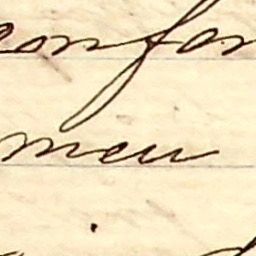 confor
meu